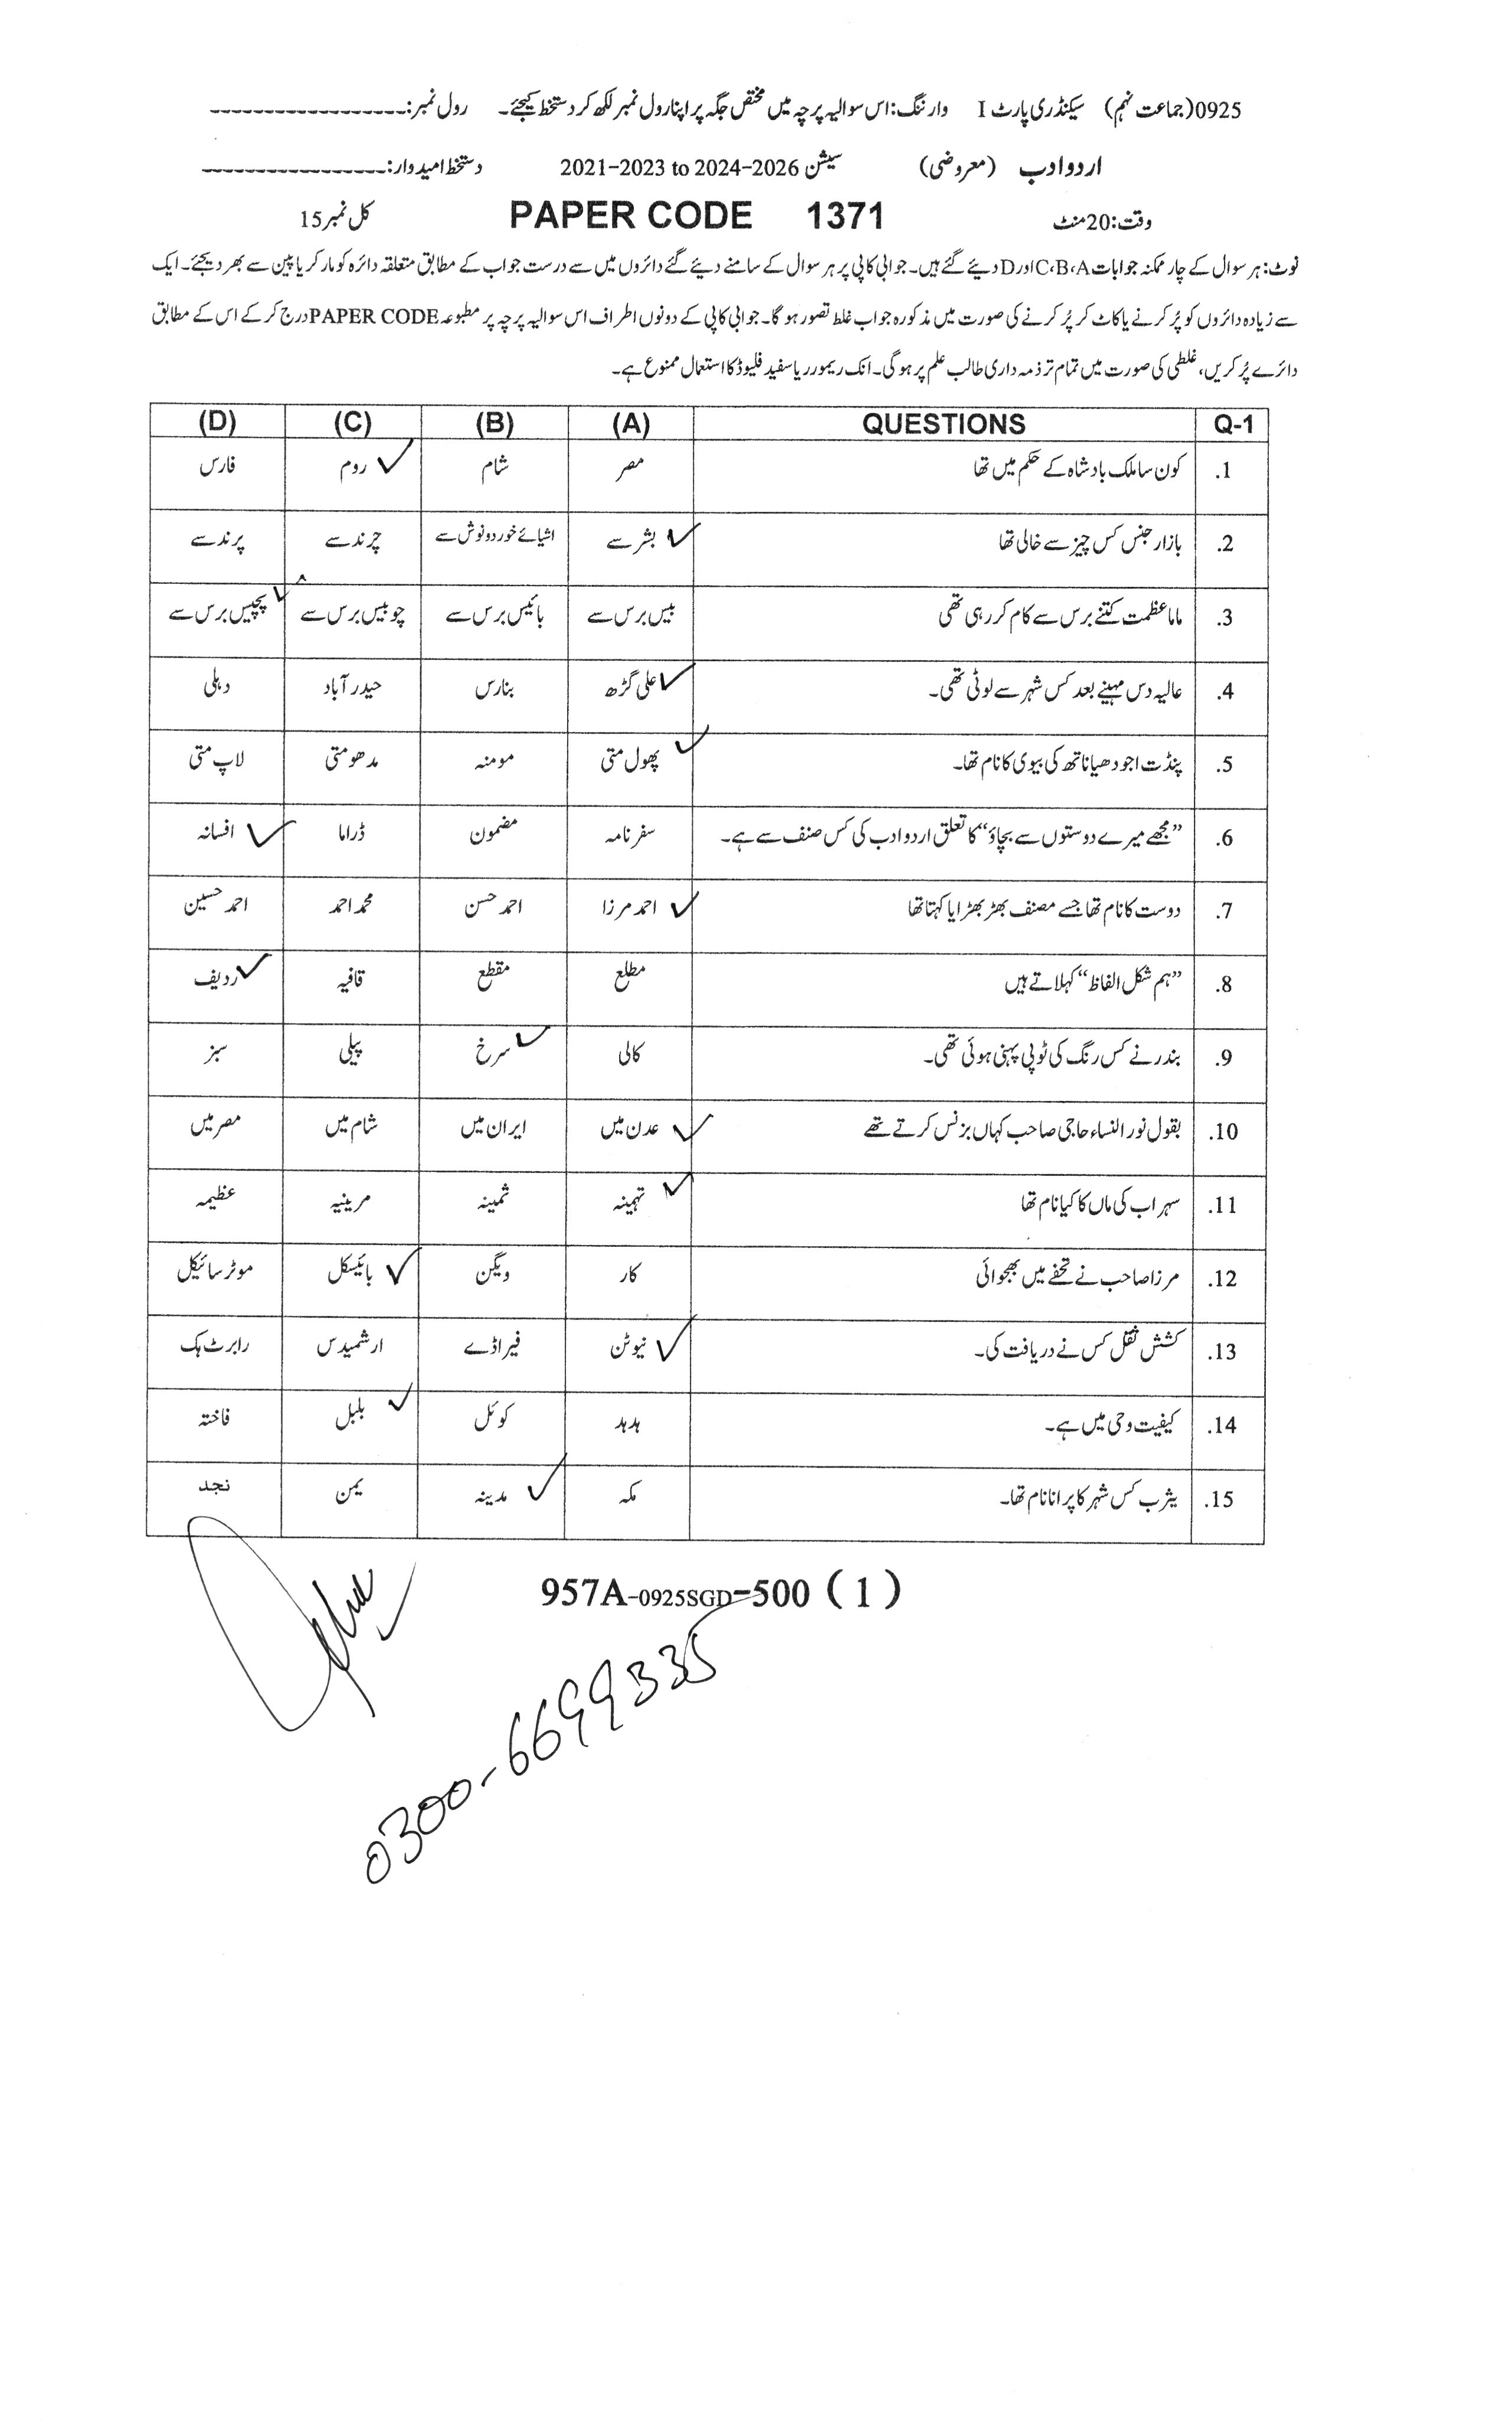 0925(جماعت نہم) سیکنڈری پارٹ I وارننگ: اس سوالیہ پرچہ میں مختص جگہ پر اپنا رول نمبر لکھ کر دستخط کیجئے۔ رول نمبر:------------------
اردو ادب (معروضی) سیشن 2021-2023 to 2024-2026 دستخط امیدوار:-----------------
وقت:20منٹ PAPER CODE 1371 کل نمبر15
نوٹ: ہر سوال کے چار ممکنہ جوابات C،B،A اور D دیئے گئے ہیں۔ جوابی کاپی پر ہر سوال کے سامنے دیئے گئے دائروں میں سے درست جواب کے مطابق متعلقہ دائرہ کو مارکر یا پین سے بھر دیجئے۔ ایک
سے زیادہ دائروں کو پُر کرنے یا کاٹ کر پُر کرنے کی صورت میں مذکورہ جواب غلط تصور ہو گا۔ جوابی کاپی کے دونوں اطراف اس سوالیہ پرچہ پر مطبوعہ PAPER CODE درج کر کے اس کے مطابق
دائرے پُر کریں، غلطی کی صورت میں تمام تر ذمہ داری طالب علم پر ہو گی۔ انک ریمور ریا سفید فلیوڈ کا استعمال ممنوع ہے۔
Q-1 QUESTIONS (A) (B) (C) (D)
1. کون سا ملک بادشاہ کے حکم میں تھا مصر شام روم ✓ فارس
2. بازار جنس کس چیز سے خالی تھا ✓ بشر سے اشیائے خوردونوش سے چرند سے پرند سے
3. ماما عظمت کتنے برس سے کام کر رہی تھی بیس برس سے بائیس برس سے چوبیس برس سے ✓ پچیس برس سے
4. عالیہ دس مہینے بعد کس شہر سے لوٹی تھی۔ ✓ علی گڑھ بنارس حیدر آباد دہلی
5. پنڈت اجودھیا ناتھ کی بیوی کا نام تھا۔ ✓ پھول متی مومنہ مدھومتی لاپ متی
6. ”مجھے میرے دوستوں سے بچاؤ“ کا تعلق اردو ادب کی کس صنف سے ہے۔ سفر نامہ مضمون ڈراما افسانہ ✓
7. دوست کا نام تھا جسے مصنف بھڑ بھڑایا کہتا تھا ✓ احمد مرزا احمد حسن محمد احمد احمد حسین
8. ”ہم شکل الفاظ“ کہلاتے ہیں مطلع مقطع قافیہ ✓ ردیف
9. بندر نے کس رنگ کی ٹوپی پہنی ہوئی تھی۔ کالی ✓ سرخ پیلی سبز
10. بقول نور النساء حاجی صاحب کہاں بزنس کرتے تھے ✓ عدن میں ایران میں شام میں مصر میں
11. سہراب کی ماں کا کیا نام تھا ✓ تہمینہ ثمینہ مرینیہ عظیمہ
12. مرزا صاحب نے تحفے میں بھجوائی کار ویگن ✓ بائیسکل موٹر سائیکل
13. کشش ثقل کس نے دریافت کی۔ ✓ نیوٹن فیراڈے ارشمیدس رابرٹ ہک
14. کیفیت وحی میں ہے۔ ہدہد کوئل ✓ بلبل فاختہ
15. یثرب کس شہر کا پرانا نام تھا۔ مکہ ✓ مدینہ یمن نجد
957A-0925SGD-500 ( 1 )
0300-6699335